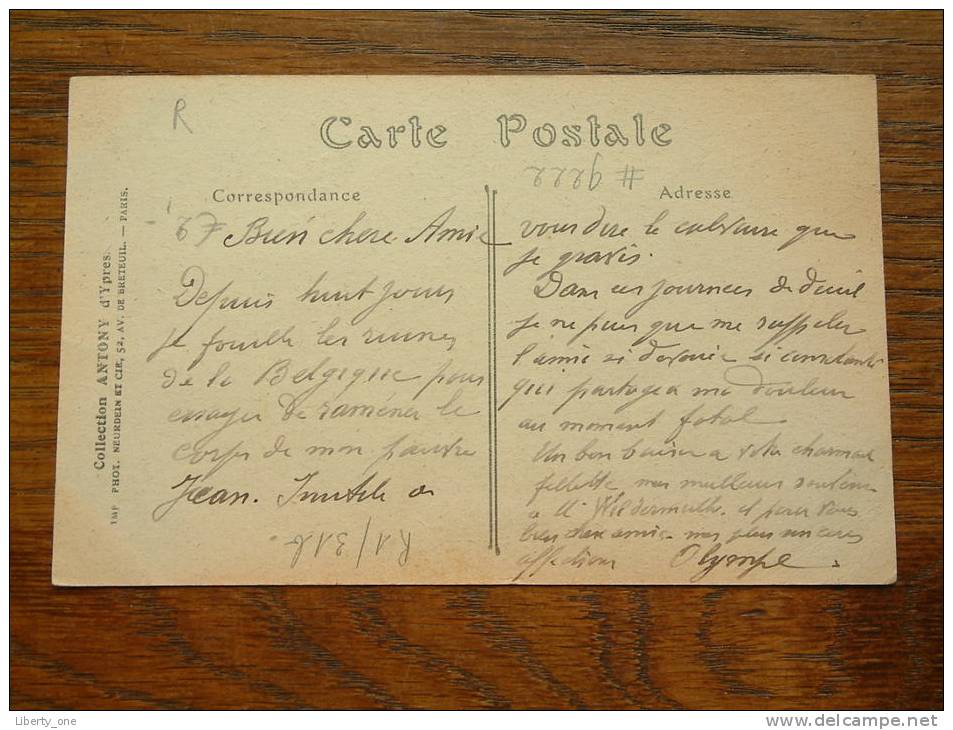 R
Carte Postale
# 9222
Correspondance
Adresse
Collection ANTONY d'Ypres.
IMP PHOT. NEURDEIN ET CIE, 52, AV. DE BRETEUIL. — PARIS.
67 Bien chere Amie
Depuis huit jours
je fouille les ruines
de la Belgique pour
essayer de ramener le
corps de mon pauvre
Jean. Inutile de
vous dire le calvaire que
je gravis.
Dans ces journees de deuil
je ne puis que me rappeler
l'amie si devouée si constante
qui partagea ma douleur
au moment fatal
Un bon baiser a votre charmante
fillette mes meilleurs
a M Wildermuth et pour vous
bien chere amie mes plus sinceres
affections Olympe
R1/316.
Liberty_one
http://www.delcampe.net